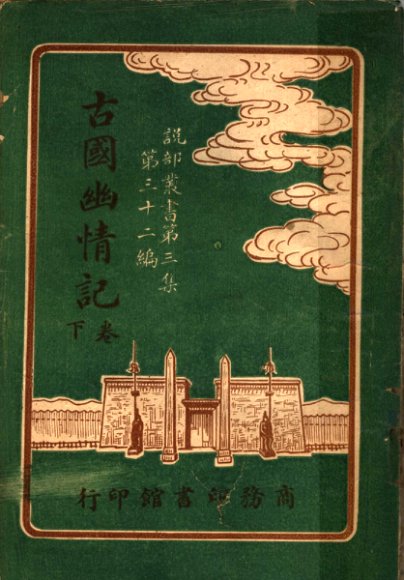 說部叢書第三集
第三十二編
古國幽情記
卷下
商務印書館印行